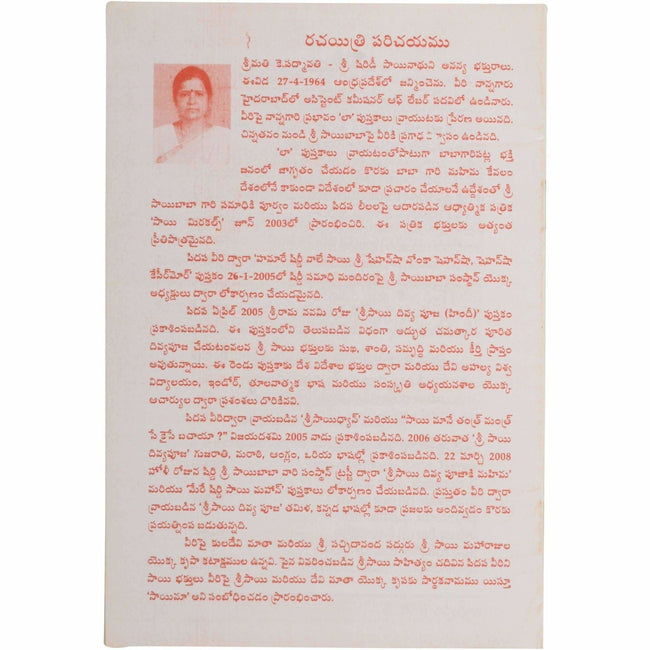 రచయిత్రి పరిచయము
శ్రీమతి కె.పద్మావతి - శ్రీ షిరిడీ సాయినాథుని అనన్య భక్తురాలు.
ఈవిడ 27-4-1964 ఆంధ్రప్రదేశ్‌లో జన్మించెను. వీరి నాన్నగారు
హైదరాబాద్‌లో అసిస్టెంట్ కమీషనర్ ఆఫ్ లేబర్ పదవిలో ఉండినారు.
వీరిపై నాన్నగారి ప్రభావం 'లా' పుస్తకాలు వ్రాయుటకు ప్రేరణ అయినది.
చిన్నతనం నుండి శ్రీ సాయిబాబాపై వీరికి ప్రగాఢ వి్వాసం ఉండినది.
'లా' పుస్తకాలు వ్రాయటంతోపాటుగా బాబాగారిపట్ల భక్తి
జనంలో జాగృతం చేయడం కొరకు బాబా గారి మహిమ కేవలం
దేశంలోనే కాకుండా విదేశంలో కూడా ప్రచారం చేయాలనే ఉద్దేశంతో శ్రీ
సాయిబాబా గారి సమాధికి పూర్వం మరియు పిదప లీలలపై ఆదారపడిన ఆధ్యాత్మిక పత్రిక
'సాయి మిరకల్స్' జూన్ 2003లో ప్రారంభించిరి. ఈ పత్రిక భక్తులకు అత్యంత
ప్రీతిపాత్రమైనది.
పిదప వీరి ద్వారా 'హమారే షిర్డీ వాలే సాయి శ్రీ షేహన్‌షా వోంకా షెహన్‌షా, షెహన్‌షా
కేసీర్‌మోర్' పుస్తకం 26-1-2005లో షిర్డీ సమాధి మందిరంపై శ్రీ సాయిబాబా సంస్థాన్ యొక్క
అధ్యక్షులు ద్వారా లోకార్పణం చేయడమైనది.
పిదప ఏప్రిల్ 2005 శ్రీరామ నవమి రోజు 'శ్రీసాయి దివ్య పూజ (హిందీ)' పుస్తకం
ప్రకాశింపబడినది. ఈ పుస్తకంలోని తెలుపబడిన విధంగా అద్భుత చమత్కార పూరిత
దివ్యపూజ చేయటంవలన శ్రీ సాయి భక్తులకు సుఖ, శాంతి, సమృద్ధి మరియు కీర్తి ప్రాప్తం
అవుతున్నాయి. ఈ రెండు పుస్తకాకు దేశ విదేశాల భక్తుల ద్వారా మరియు దేవి అహల్య విశ్వ
విద్యాలయం, ఇండోర్, తూలనాత్మక భాష మరియు సంస్కృతి అధ్యయనశాల యొక్క
ఆచార్యుల ద్వారా ప్రశంశలు దొరికినవి.
పిదప వీరిద్వారా వ్రాయబడిన 'శ్రీసాయిధ్యాన్' మరియు "సాయి మానే తంత్ర్ మంత్ర్
సే కైసే బచాయా ?" విజయదశమి 2005 నాడు ప్రకాశింపబడినది. 2006 తరువాత 'శ్రీ సాయి
దివ్యపూజ' గుజరాతి, మరాఠి, ఆంగ్లం, ఒరియ భాషల్లో ప్రకాశింపబడినది. 22 మార్చి 2008
హోళీ రోజున షిర్డి శ్రీ సాయిబాబా వారి సంస్థాన్ ట్రస్టీ ద్వారా 'శ్రీసాయి దివ్య పూజాకీ మహిమ'
మరియు 'మేరే షిర్డి సాయి మహాన్' పుస్తకాలు లోకార్పణం చేయబడినది. ప్రస్తుతం వీరి ద్వారా
వ్రాయబడిన 'శ్రీసాయి దివ్య పూజ' తమిళ, కన్నడ భాషల్లో కూడా ప్రజలకు అందివ్వడం కొరకు
ప్రయత్నింప బడుతున్నది.
వీరిపై కులదేవి మాతా మరియు శ్రీ సచ్చిదానంద సద్గురు శ్రీ సాయి మహారాజుల
యొక్క కృపా కటాక్షముల ఉన్నవి. పైన వివరించబడిన శ్రీసాయి సాహిత్యం చదివిన పిదప వీరిని
సాయి భక్తులు వీరిపై శ్రీసాయి మరియు దేవి మాతా యొక్క కృపకు సార్థకనామము యిస్తూ
'సాయిమా' అని సంబోధించడం ప్రారంభించారు.